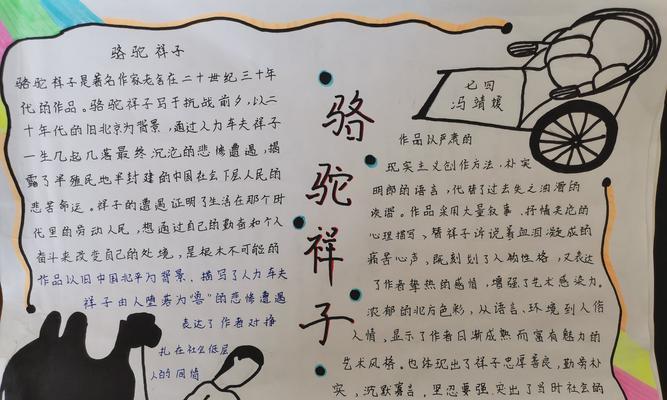 骆驼祥子
骆驼祥子是著名作家老舍在二十世纪三十年
代的作品。骆驼祥子写于抗战前夕，以二
十年代的旧北京为背景，通过人力车夫祥子
一生几起几落最终沉沦的悲惨遭遇，揭
露了半殖民地半封建的中国社会下层人民的
悲苦命运。祥子的遭遇证明了生活在那个时
代里的劳动人民，想通过自己的勤奋和个人
奋斗来改变自己的处境，是根本不可能的
作品以旧中国北平为背景，描写了人力车夫
祥子由人堕落为“兽”的悲惨遭遇
表达了作者对挣
扎在社会低层
人的同情
骆
驼
祥
子
七四
冯靖媛
作品以严肃的
现实主义创作方法，朴实
明郎的语言，代替了过去失之油滑的
诙谐。作品采用大量叙事、抒情夹论的
心理描写、替祥子诉说着血泪凝成的
痛苦心声，既刻划了人物性格，又表达
了作者挚热的感情，增强了艺术感染力。
浓郁的北方色彩，从语言、环境到人俗
人情，显示了作者日渐成熟而富有魅力的
艺术风格。也体现出了祥子忠厚善良，勤劳朴
实，沉默寡言，坚忍要强，突出了当时社会的